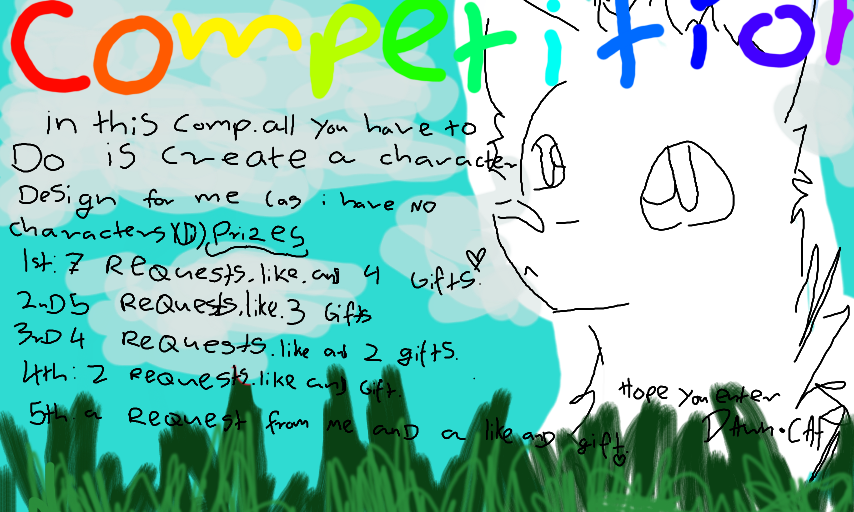 Competition
in this comp. all you have to
Do is create a character
Design for me (as i have no
characters)(D:) Prizes
1st: 7 Requests. like. and 4 Gifts.
2nD 5 Requests. like. 3 Gifts
3rD 4 Requests. like and 2 gifts.
4th: 2 requests. like and Gift.
5th a Request from me anD a like anD gift.
Hope you enter
Dawn•CAt